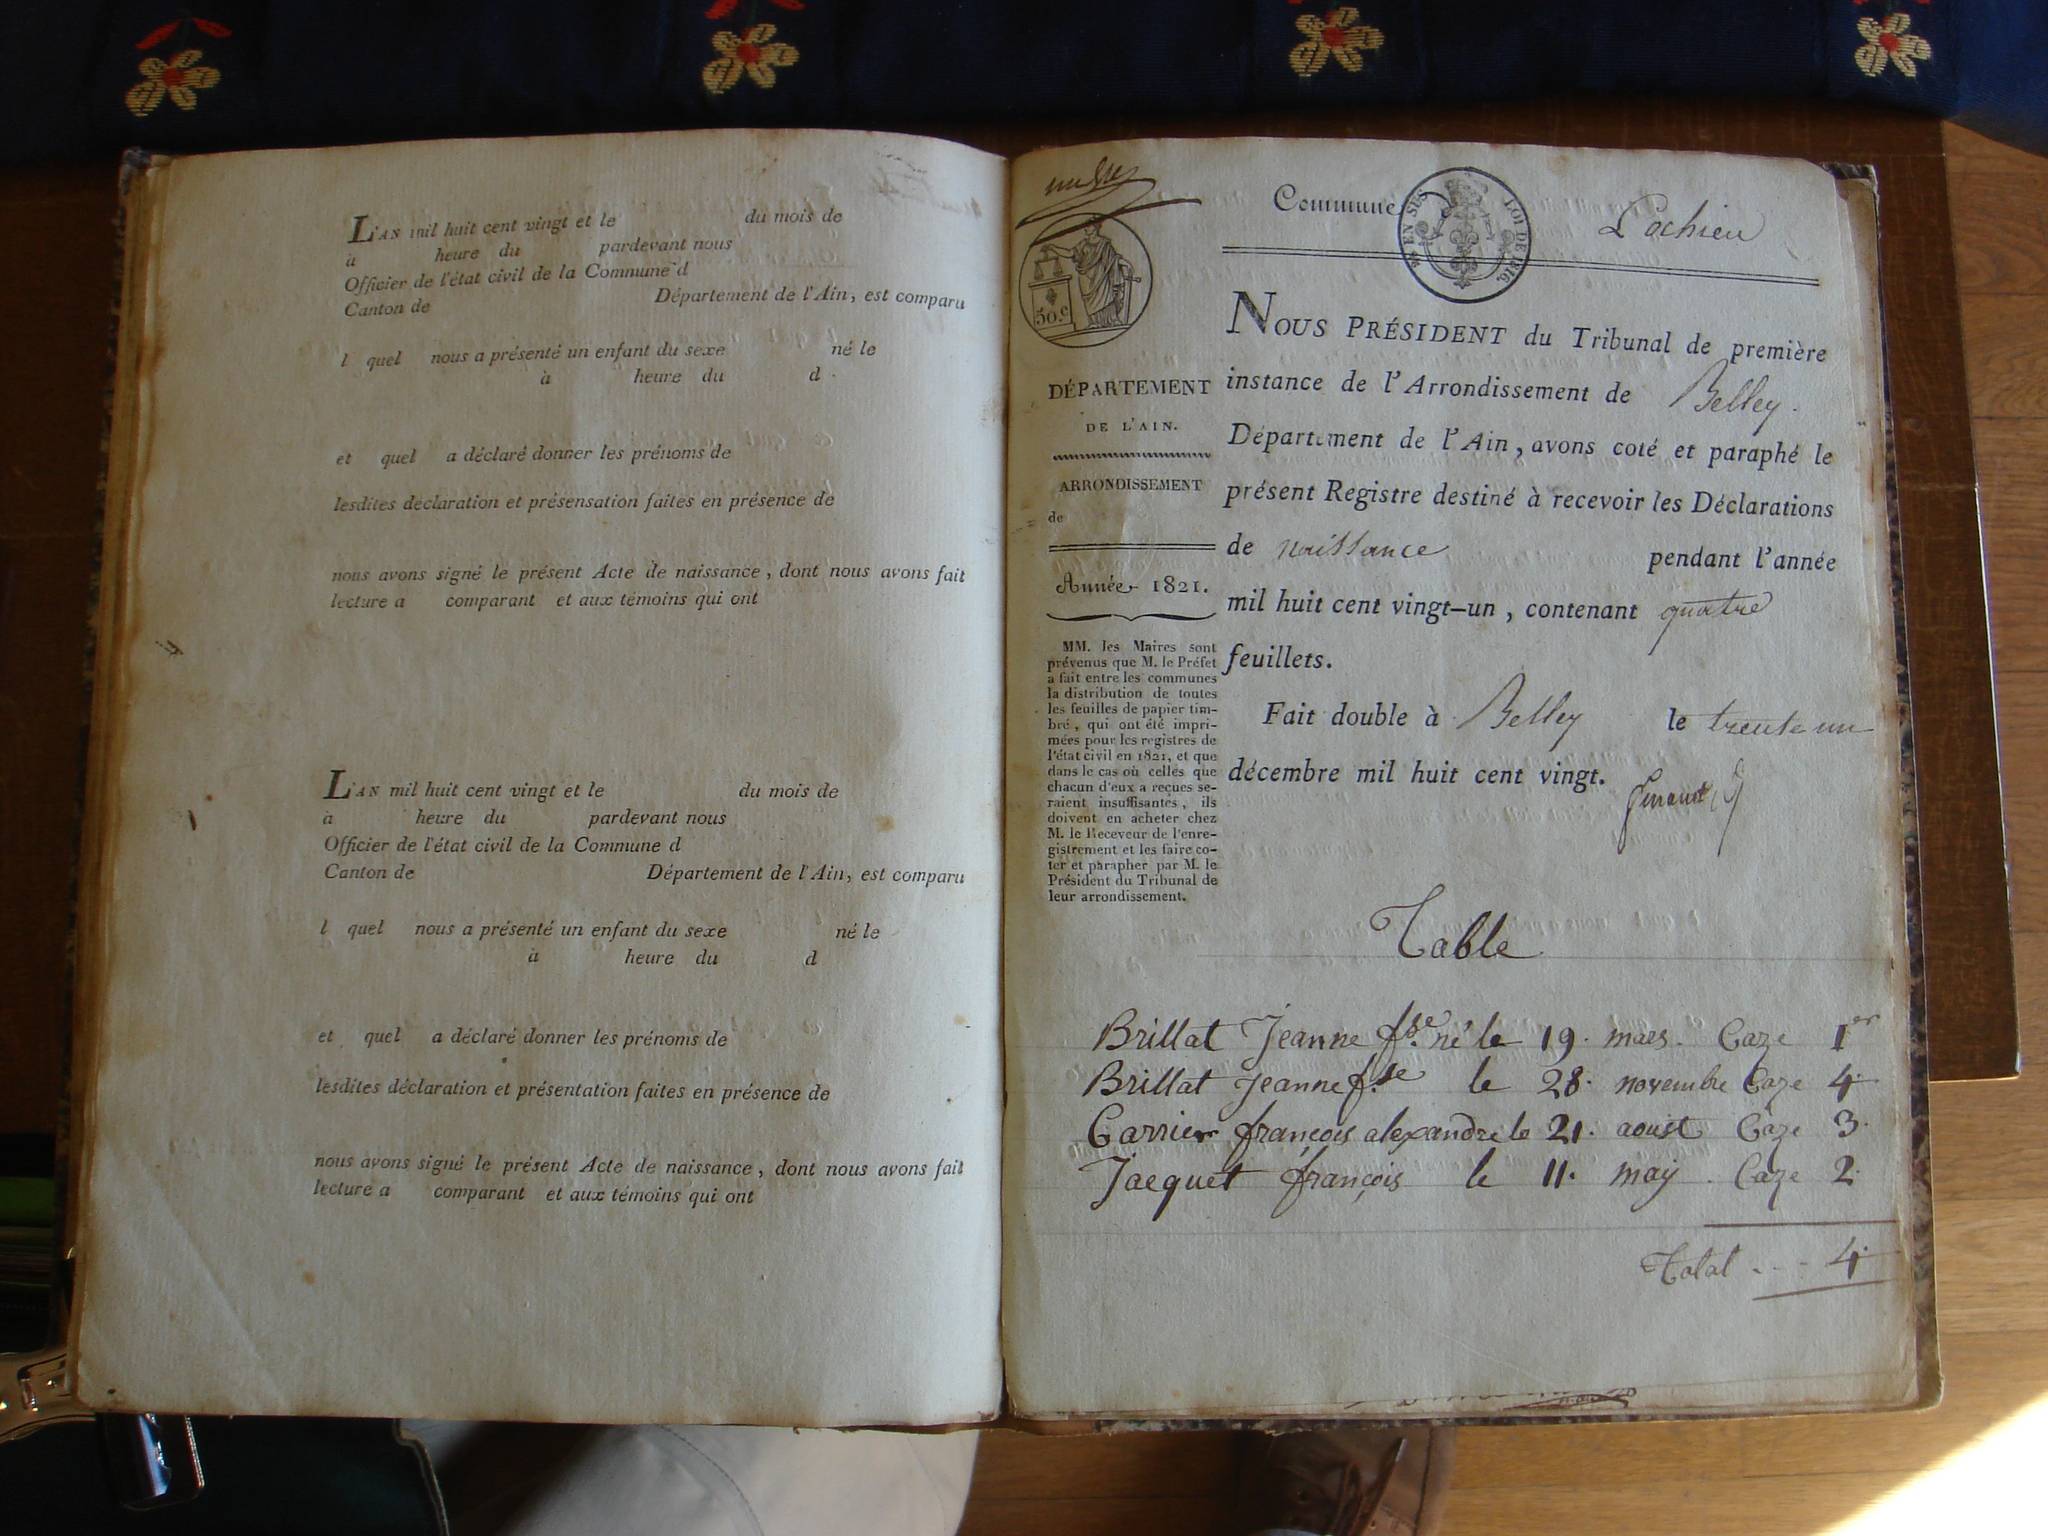 L'AN mil huit cent vingt et le du mois de
à heure du pardevant nous
Officier de l'état civil de la Commune d
Canton de Département de l'Ain, est comparu
l quel nous a présenté un enfant du sexe né le
à heure du d
et quel a déclaré donner les prénoms de
lesdites déclaration et présensation faites en présence de
nous avons signé le présent Acte de naissance, dont nous avons fait
lecture a comparant et aux témoins qui ont
L'AN mil huit cent vingt et le du mois de
à heure du pardevant nous
Officier de l'état civil de la Commune d
Canton de Département de l'Ain, est comparu
l quel nous a présenté un enfant du sexe né le
à heure du d
et quel a déclaré donner les prénoms de
lesdites déclaration et présentation faites en présence de
nous avons signé le présent Acte de naissance, dont nous avons fait
lecture a comparant et aux témoins qui ont
50.c
DÉPARTEMENT
DE L'AIN.
ARRONDISSEMENT
de
Année 1821.
MM. les Maires sont
prévenus que M. le Préfet
a fait entre les communes
la distribution de toutes
les feuilles de papier tim-
bré, qui ont été impri-
mées pour les registres de
l'état civil en 1821, et que
dans le cas où celles que
chacun d'eux a reçues se-
raient insuffisantes, ils
doivent en acheter chez
M. le Receveur de l'enre-
gistrement et les faire co-
ter et parapher par M. le
Président du Tribunal de
leur arrondissement.
Commune Lochieu
EN SUS LOI DE 1816.
NOUS PRÉSIDENT du Tribunal de première
instance de l'Arrondissement de Belley.
Département de l'Ain, avons coté et paraphé le
présent Registre destiné à recevoir les Déclarations
de naissance pendant l'année
mil huit cent vingt-un, contenant quatre
feuillets.
Fait double à Belley le trente un
décembre mil huit cent vingt.
Table
Brillat Jeanne fse né le 19. mars. Caze 1er
Brillat Jeanne fse le 28. novembre Caze 4.
Carrier françois alexandre le 21. aoust Caze 3.
Jacquet françois le 11. may. Caze 2.
Total . - - 4.